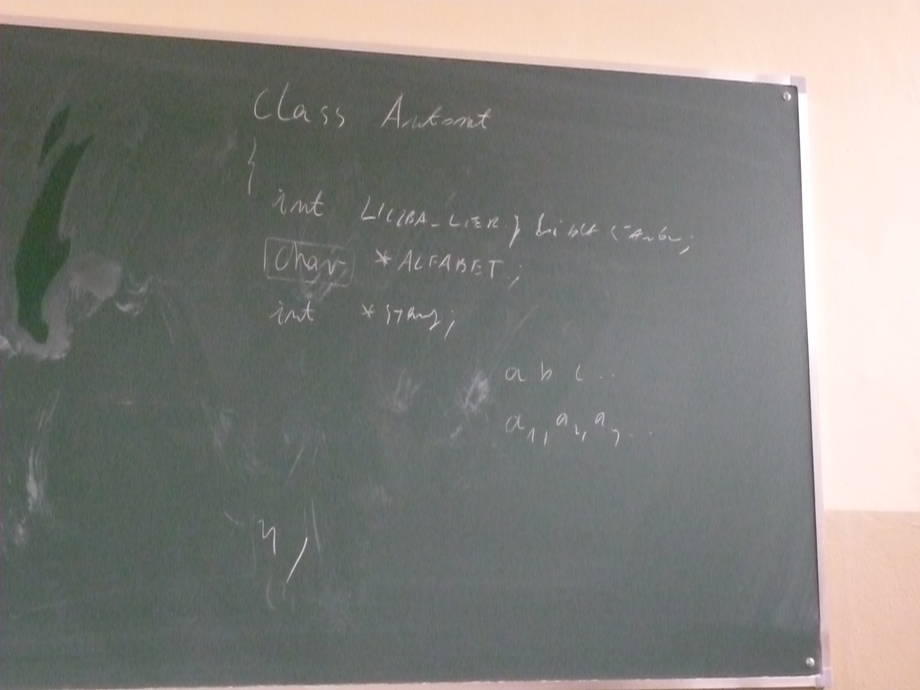 Class Automat
{
int LICZBA_LITER, liczba_stanow;
char *ALFABET;
int *stany;
a b c ..
a1, a2, a3 ...
};